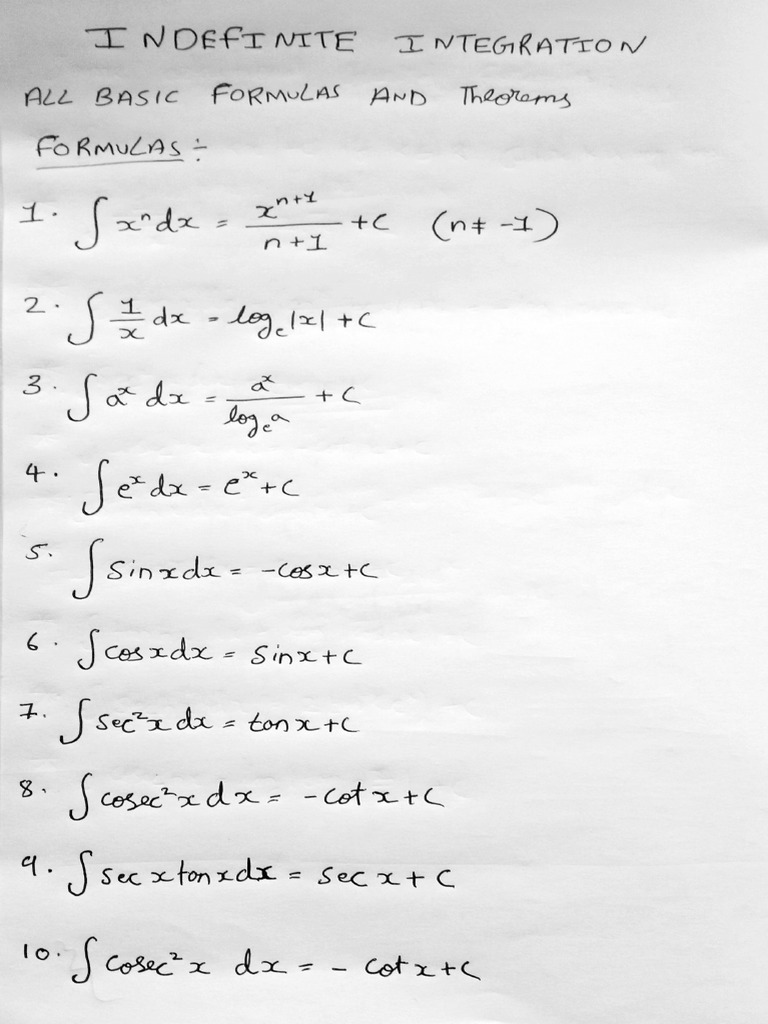 INDEFINITE INTEGRATION
ALL BASIC FORMULAS AND Theorems
FORMULAS ÷
1. ∫ xⁿ dx = xⁿ⁺¹/(n+1) + C (n ≠ -1)
2. ∫ 1/x dx = logₑ|x| + C
3. ∫ aˣ dx = aˣ/logₑa + C
4. ∫ eˣ dx = eˣ + C
5. ∫ sin x dx = -cos x + C
6. ∫ cos x dx = sin x + C
7. ∫ sec²x dx = tan x + C
8. ∫ cosec²x dx = -cot x + C
9. ∫ sec x tan x dx = sec x + C
10. ∫ cosec²x dx = - cot x + C